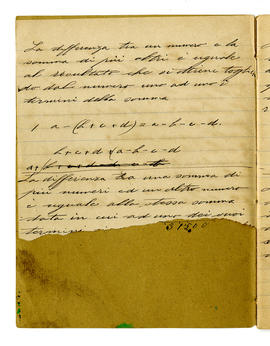 La differenza tra un numero e la
somma di più altri è uguale
al resultato che si ottiene toglien
do dal numero uno ad uno i
termini della somma
1 a-(b+c+d)=a-b-c-d.
b+c+d (a-b-c-d
La differenza tra una somma di
più numeri ed un altro numero
è uguale alla stessa somma
data in cui ad uno dei suoi
termini